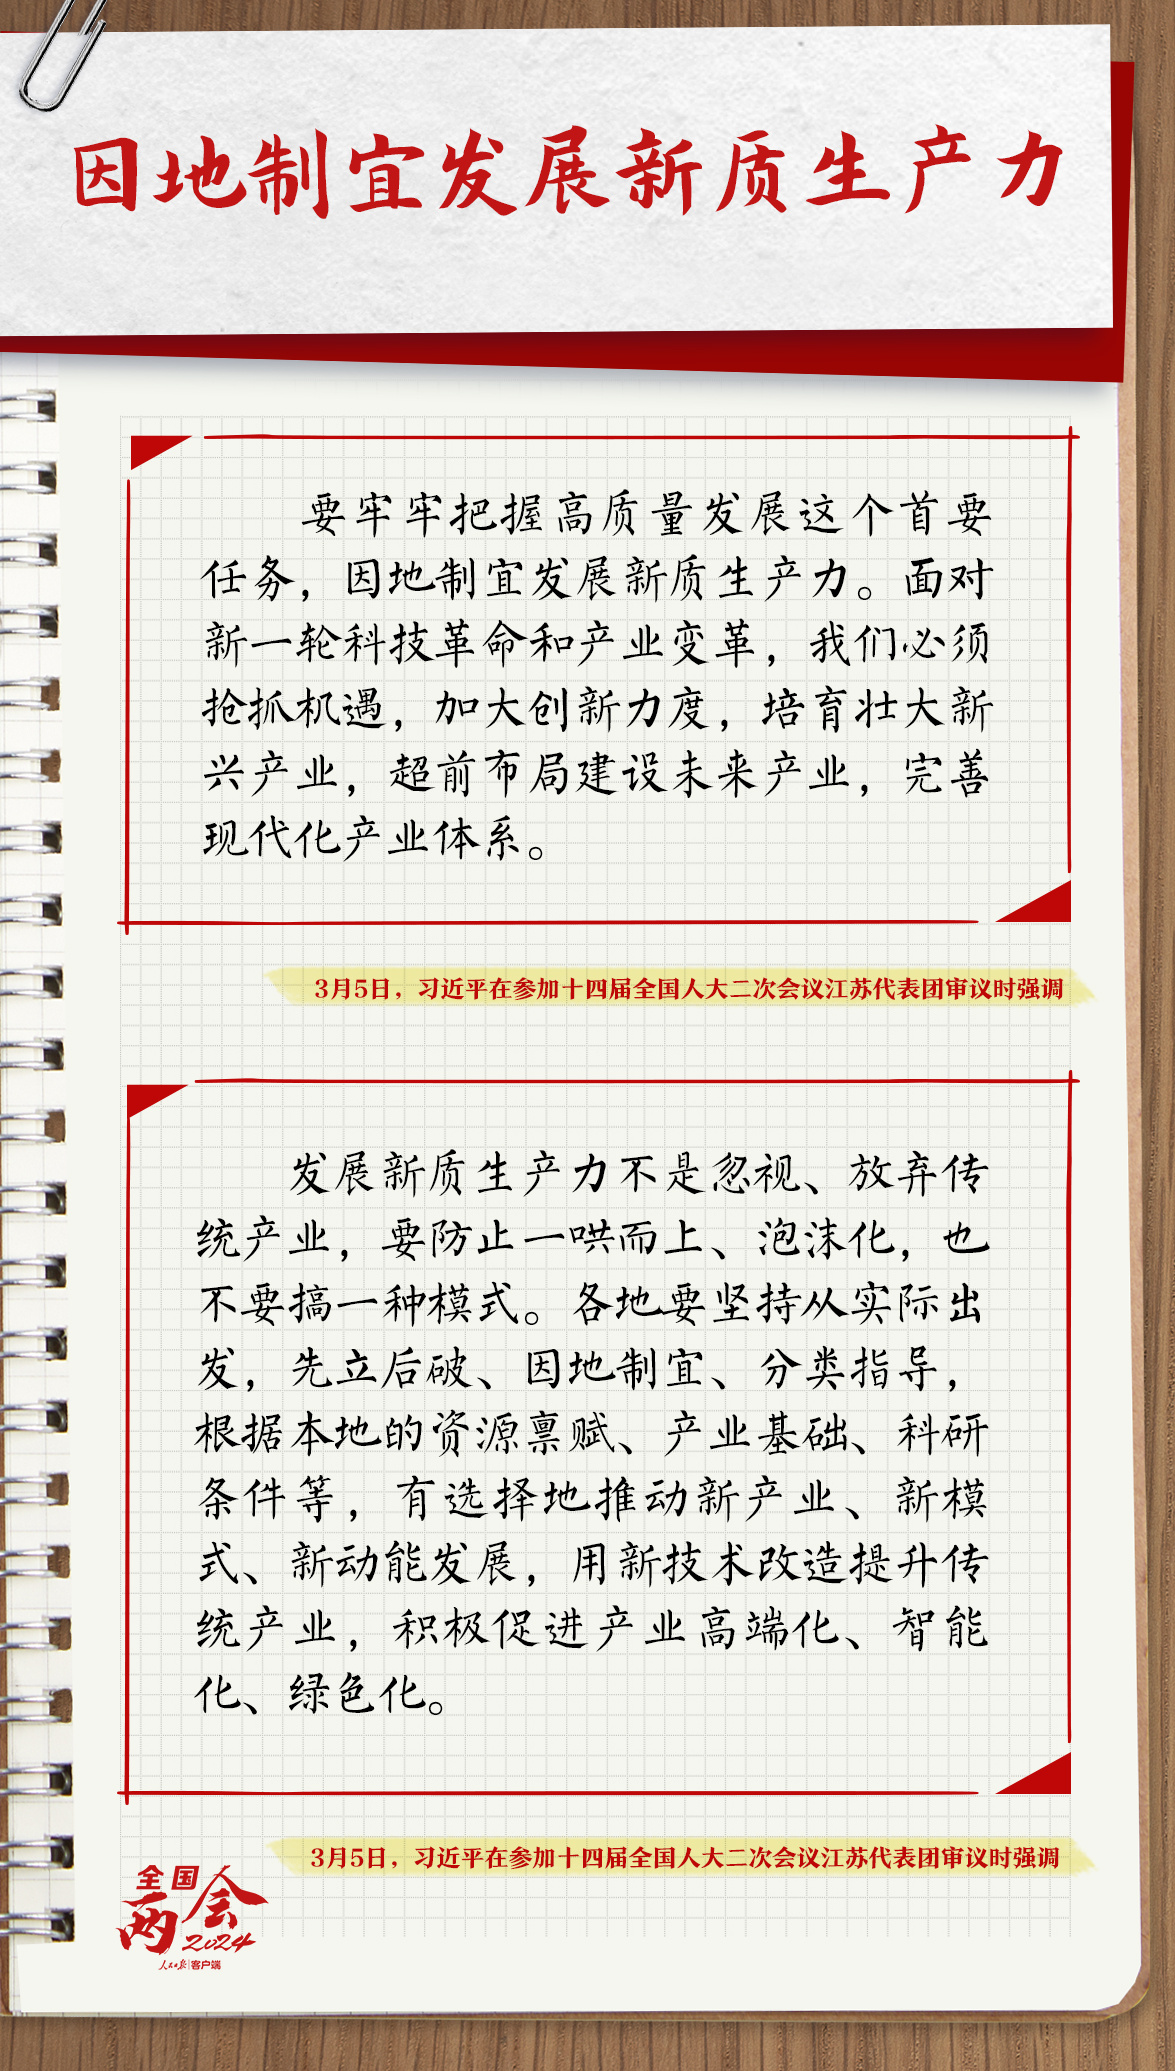 因地制宜发展新质生产力
要牢牢把握高质量发展这个首要
任务，因地制宜发展新质生产力。面对
新一轮科技革命和产业变革，我们必须
抢抓机遇，加大创新力度，培育壮大新
兴产业，超前布局建设未来产业，完善
现代化产业体系。
3月5日，习近平在参加十四届全国人大二次会议江苏代表团审议时强调
发展新质生产力不是忽视、放弃传
统产业，要防止一哄而上、泡沫化，也
不要搞一种模式。各地要坚持从实际出
发，先立后破、因地制宜、分类指导，
根据本地的资源禀赋、产业基础、科研
条件等，有选择地推动新产业、新模
式、新动能发展，用新技术改造提升传
统产业，积极促进产业高端化、智能
化、绿色化。
3月5日，习近平在参加十四届全国人大二次会议江苏代表团审议时强调
全国
两会
2024
人民日报|客户端